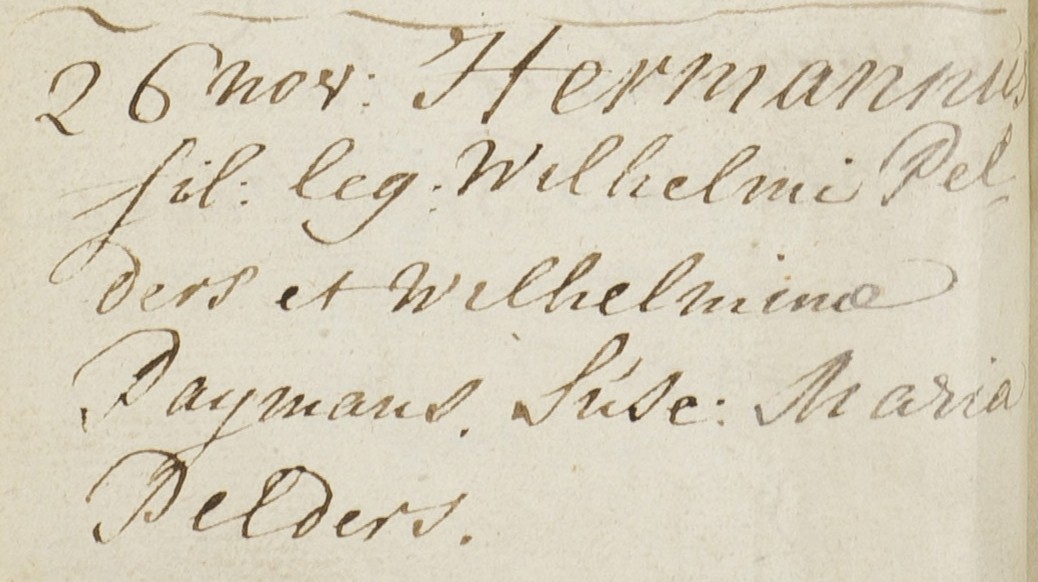 26 nov: Hermannus
fil: leg: Wilhelmi Pel-
ders et Wilhelminæ
Paymans. Susc: Maria
Pelders.